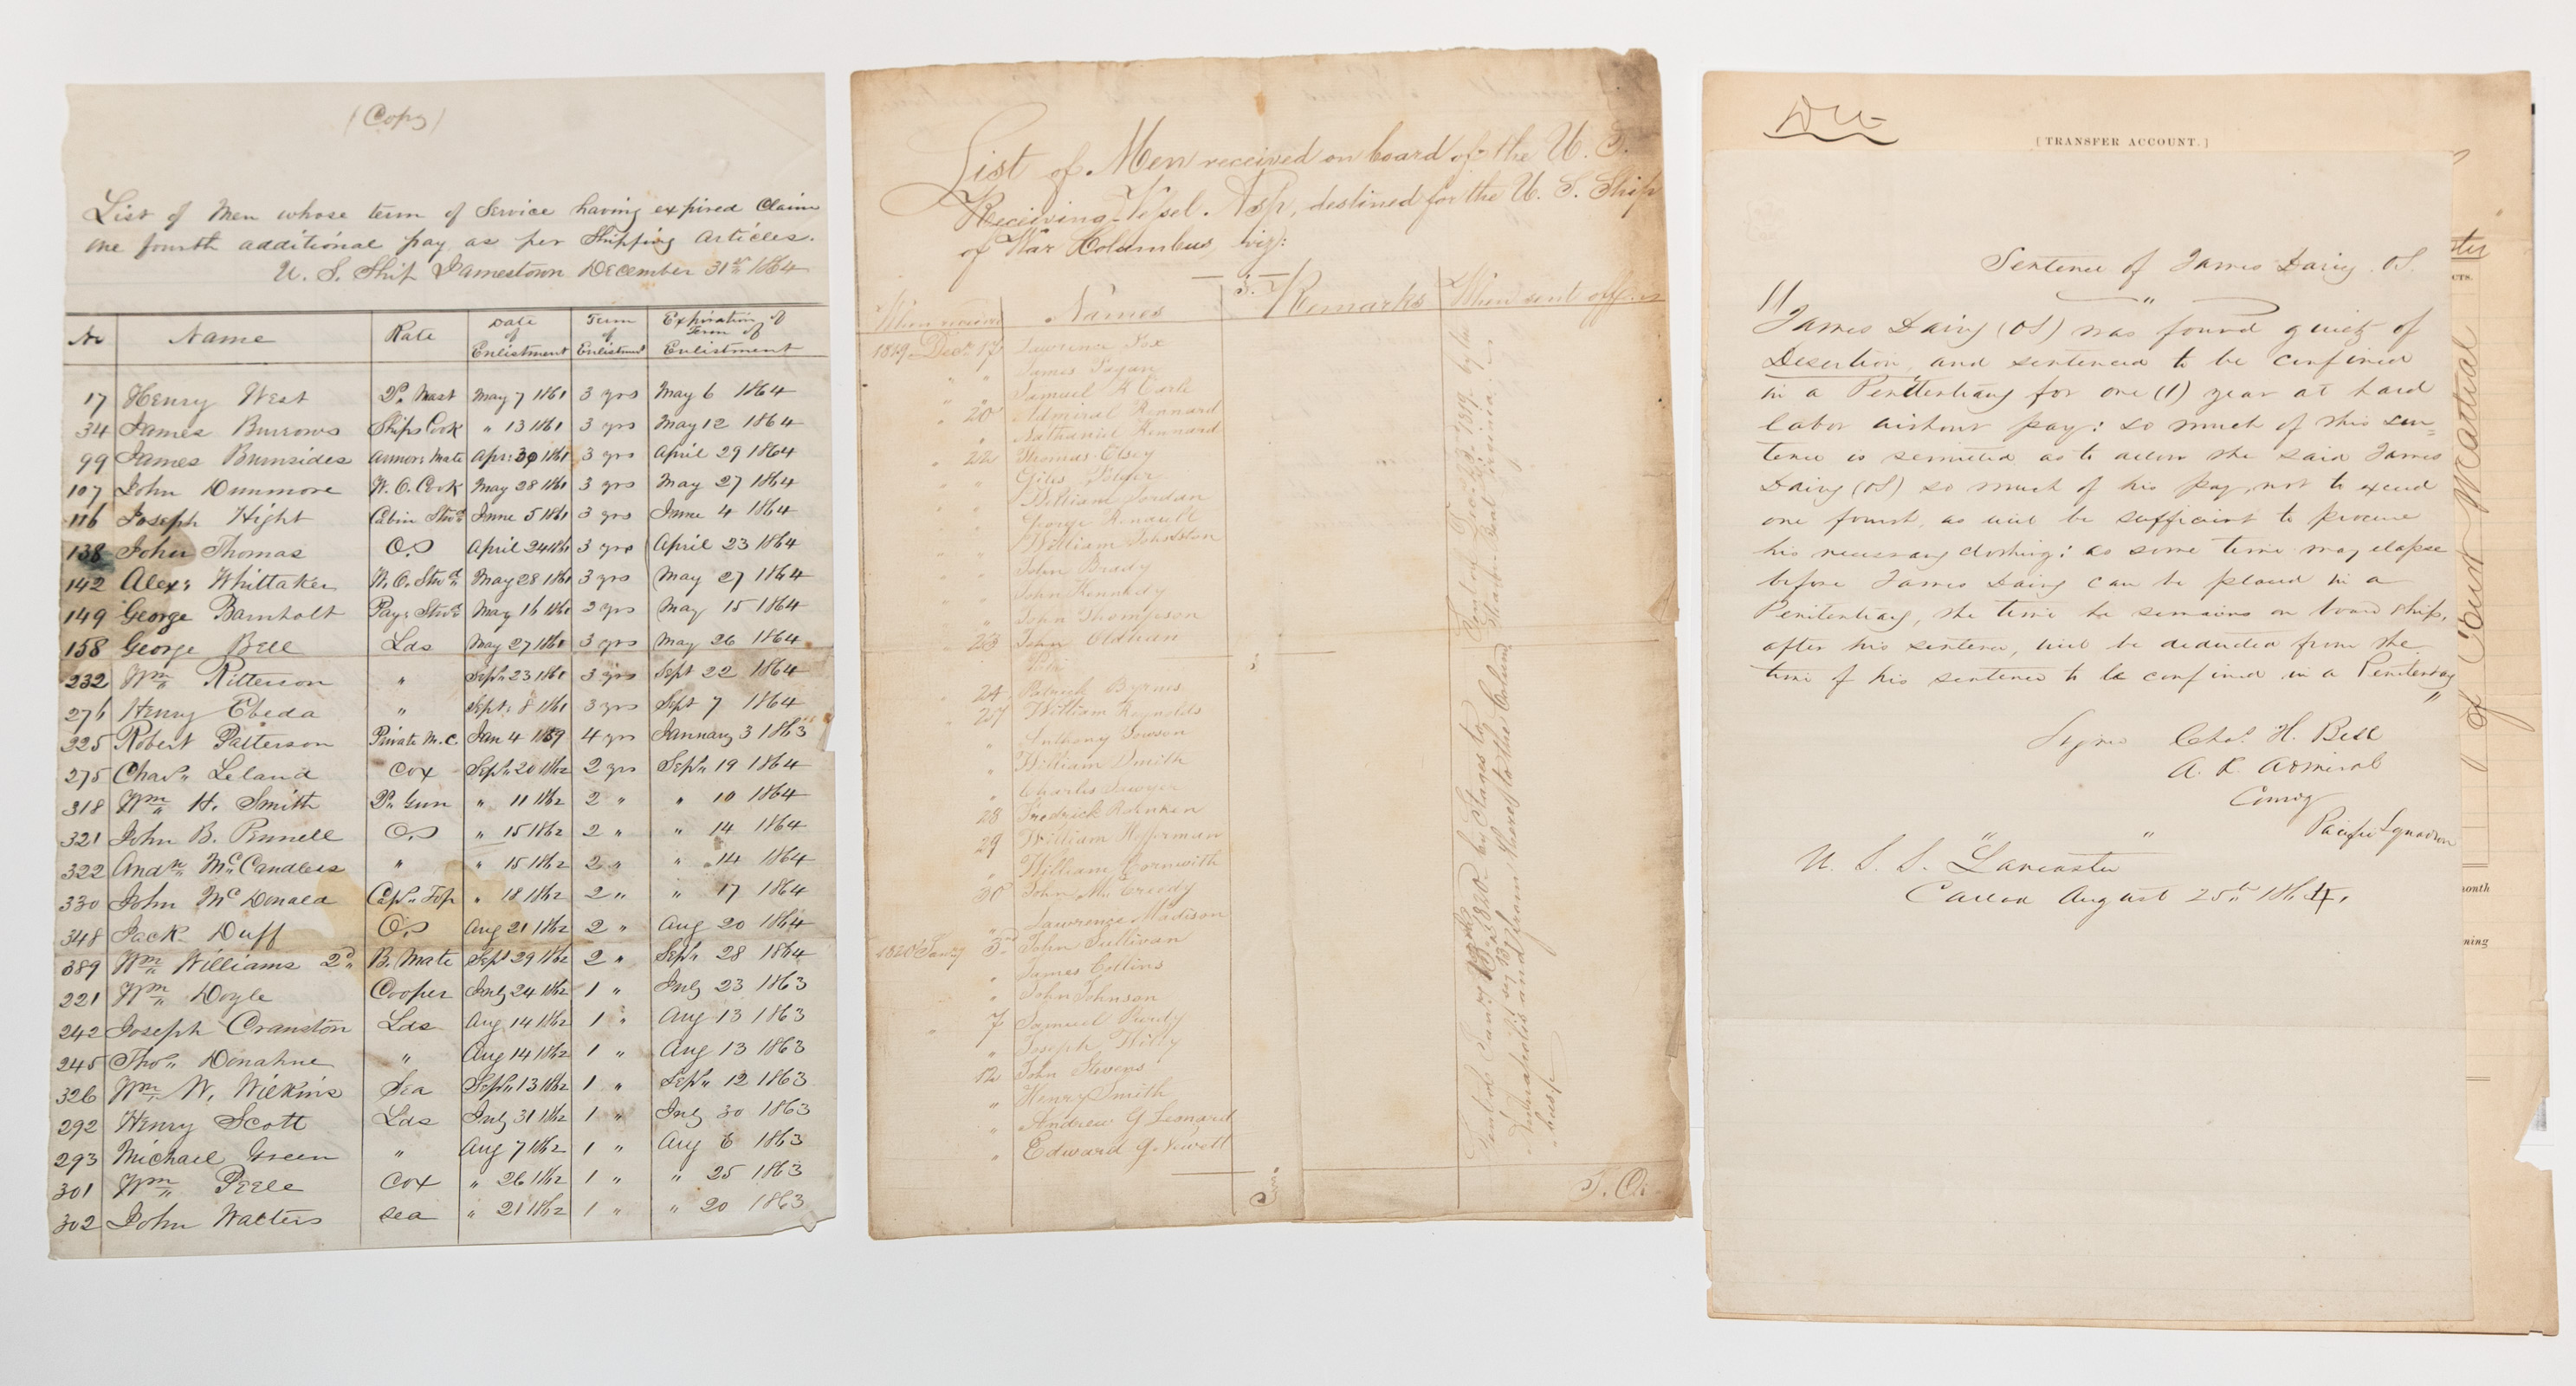 (Copy)
List of Men whose term of Service having expired Claim
one fourth additional pay as per Shipping Articles.
U. S. Ship Jamestown December 31st 1864
No Name Rate Date of Enlistment Term of Enlistment Expiration of Term of Enlistment
17 Henry West Qr. Mast May 7 1861 3 yrs May 6 1864
34 James Burrows Ships Cook " 13 1861 3 yrs May 12 1864
99 James Burnsides Armor: Mate Apr: 30 1861 3 yrs April 29 1864
107 John Dunmore W. O. Cook May 28 1861 3 yrs May 27 1864
116 Joseph Hight Cabin Stwd June 5 1861 3 yrs June 4 1864
138 John Thomas O.S April 24 1861 3 yrs April 23 1864
142 Alexr Whittaker W. O. Stwd May 28 1861 3 yrs May 27 1864
149 George Barnholt Payr Stwd May 16 1861 3 yrs May 15 1864
158 George Bell Lds May 27 1861 3 yrs May 26 1864
232 Wm Ritterson " Sept 23 1861 3 yrs Sept 22 1864
276 Henry Ebeda " Sept: 8 1861 3 yrs Sept 7 1864
225 Robert Patterson Private M.C. Jan 4 1859 4 yrs January 3 1863
275 Chas Leland Cox Sept 20 1862 2 yrs Sept 19 1864
318 Wm H. Smith Qr Gun " 11 1862 2 " " 10 1864
321 John B. Pennell O.S " 15 1862 2 " " 14 1864
322 Andw McCandless " " 15 1862 2 " " 14 1864
330 John McDonald Capt Top " 18 1862 2 " " 17 1864
348 Jack Duff O.S Aug 21 1862 2 " Aug 20 1864
389 Wm Williams 2d B. Mate Sept 29 1862 2 " Sept 28 1864
221 Wm Doyle Cooper July 24 1862 1 " July 23 1863
242 Joseph Cranston Lds Aug 14 1862 1 " Aug 13 1863
245 Thos Donahue " Aug 14 1862 1 " Aug 13 1863
326 Wm W. Wilkins Sea Sept 13 1862 1 " Sept 12 1863
292 Henry Scott Lds July 31 1862 1 " July 30 1863
293 Michael Green " Aug 7 1862 1 " Aug 6 1863
301 Wm Peele Cox " 26 1862 1 " " 25 1863
302 John Walters Sea " 21 1862 1 " " 20 1863
List of Men received on board of the U. S.
Receiving Vessel Asp, destined for the U. S. Ship
of War Columbus, viz:
When received Names Remarks When sent off
1819 Decr 17 Lawrence Fox
" " James Fagan
" " Samuel
" 20 Admiral Kennard
" Nathaniel Kennard
" 22 Thomas Elsey
" " Giles
" " William Jordan
" " George
" " William Johnston
" " John Brady
" " John Kennedy
" " John Thompson
" 23 John Oldhan
" 24 Patrick Byrnes
" 27 William Reynolds
" Anthony Towson
" William Smith
" Charles Sawyer
28 Fredrick
29 William Hefferman
" William Cornwith
30 John McCreedy
" Lawrence Madison
1820 Jany 3rd John Sullivan
" James Collins
" John Johnson
" 7 Samuel Purdy
" Joseph Willy
12 John Stevens
" Henry Smith
" Andrew G Leonard
" Edward G Newell
T. O.
[TRANSFER ACCOUNT.]
Sentence of James Dairy O.S.
"
James Dairy (OS) was found guilty of
Desertion, and sentenced to be confined
in a Penitentiary for one (1) year at hard
labor without pay: so much of this sen=
tence is remitted as to allow the said James
Dairy (OS) so much of his pay, not to exceed
one fourth, as will be sufficient to procure
his necessary clothing: as some time may elapse
before James Dairy can be placed in a
Penitentiary, the time he remains on board ship,
after his sentence, will be deducted from the
time of his sentence to be confined in a Penitentiary
"
Signed Chas. H. Bell
A. R. Admiral
Comdg
Pacific Squadron
U. S. S. "Lancaster"
Callao August 25th 1864.
of Court Martial
CTS.
month
ning